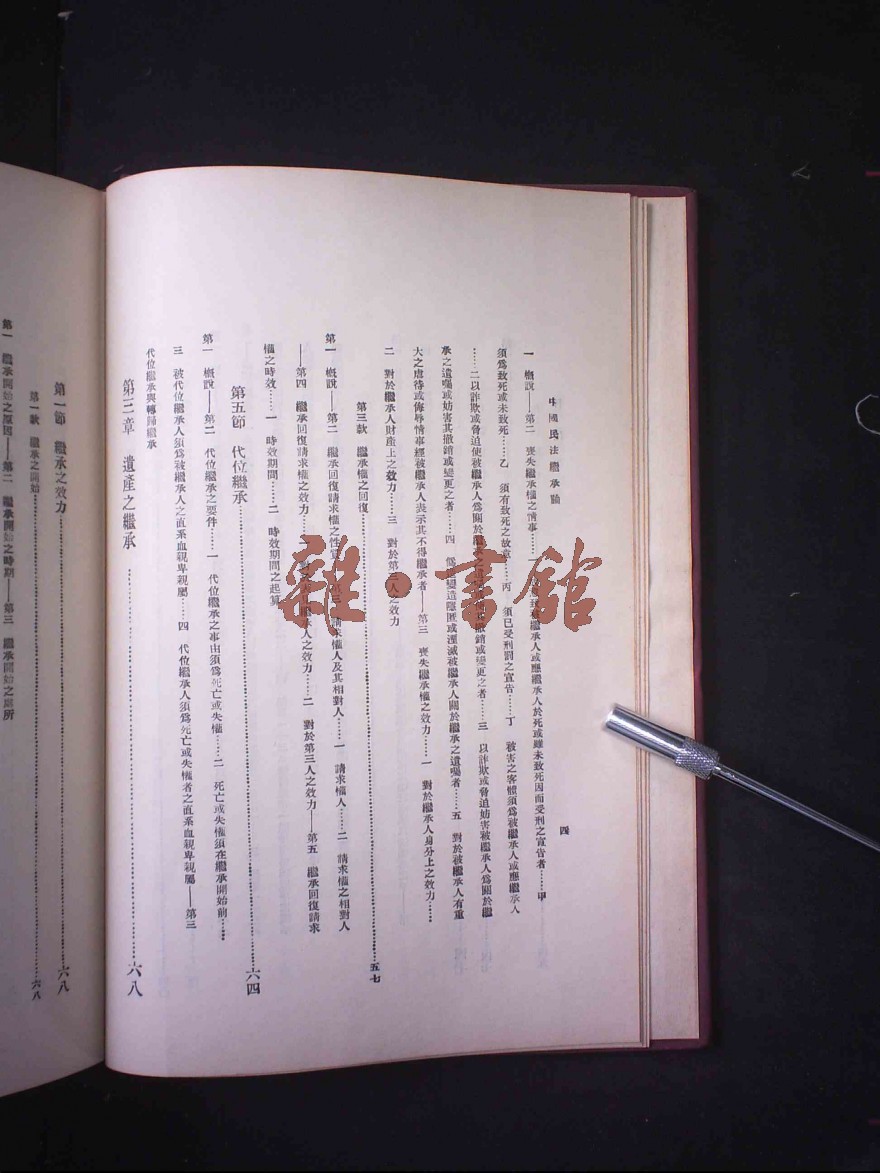 中國民法繼承論
四
一 概說——第二 喪失繼承權之情事……
繼承人或應繼承人於死或雖未致死因而受刑之宣告者……甲
須爲致死或未致死……乙 須有致死之故意……丙 須已受刑罰之宣告……丁 被害之客體須爲被繼承人或應繼承人
……二以詐欺或脅迫使被繼承人爲關於繼承之遺囑或撤銷或變更之者……三 以詐欺或脅迫妨害被繼承人爲關於繼
承之遺囑或妨害其撤銷或變更之者……四 僞造變造隱匿或湮滅被繼承人關於繼承之遺囑者……五 對於被繼承人有重
大之虐待或侮辱情事經被繼承人表示其不得繼承者——第三 喪失繼承權之效力……一 對於繼承人身分上之效力……
二 對於繼承人財產上之效力……三 對於第三人之效力
第三款 繼承權之回復……五七
第一 概說——第二 繼承回復請求權之性質——第三 請求權人及其相對人……一 請求權人……二 請求權之相對人
——第四 繼承回復請求權之效力……一 對
繼承人之效力……二 對於第三人之效力——第五 繼承回復請求
權之時效……一 時效期間……二 時效期間之起算
第五節 代位繼承……六四
第一 概說——第二 代位繼承之要件……一 代位繼承之事由須爲死亡或失權……二 死亡或失權須在繼承開始前……
三 被代位繼承人須爲被繼承人之直系血親卑親屬……四 代位繼承人須爲死亡或失權者之直系血親卑親屬——第三
代位繼承與轉歸繼承
第三章 遺產之繼承……六八
第一節 繼承之效力……六八
第一款 繼承之開始……六八
第一 繼承開始之原因——第二 繼承開始之時期——第三 繼承開始之處所
雜·書館